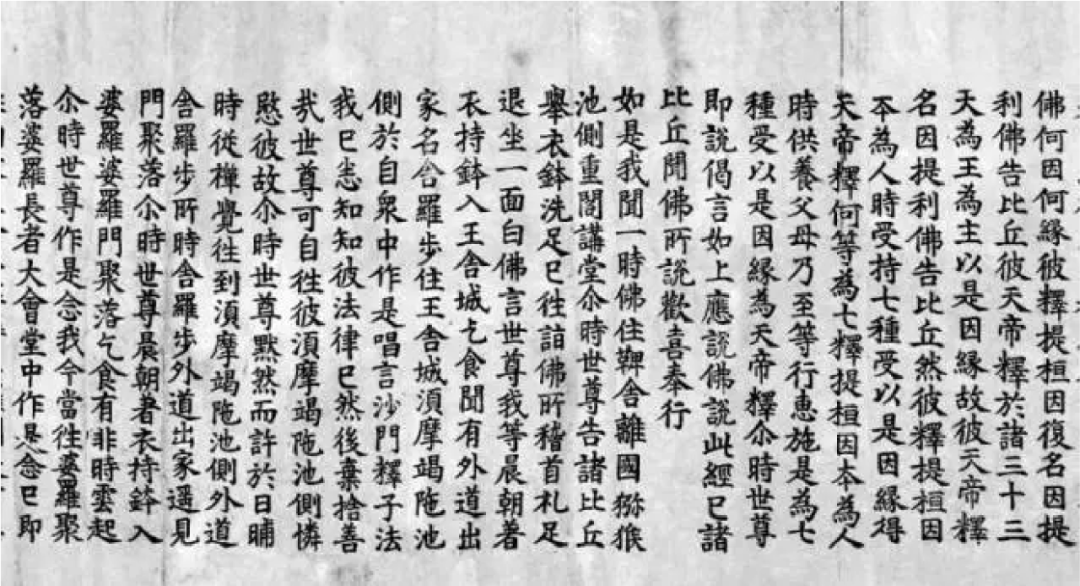 佛何因何緣彼釋提桓因復名因提
利佛告比丘彼天帝釋於諸三十三
天為王為主以是因緣故彼天帝釋
名因提利佛告比丘然彼釋提桓因
本為人時受持七種受以是因緣得
天帝釋何等為七釋提桓因本為人
時供養父母乃至等行惠施是為七
種受以是因緣為天帝釋尒時世尊
即說偈言如上應說佛說此經已諸
比丘聞佛所說歡喜奉行
如是我聞一時佛住鞞舍離國獼猴
池側重閣講堂尒時世尊告諸比丘
舉衣鉢洗足已往詣佛所稽首礼足
退坐一面白佛言世尊我等晨朝著
衣持鉢入王舍城乞食聞有外道出
家名舎羅步住王舍城須摩竭陁池
側於自眾中作是唱言沙門釋子法
我已悉知知彼法律已然後棄捨善
㢤世尊可自往彼須摩竭陁池側憐
愍彼故尒時世尊默然而許於日晡
時從禪覺往到須摩竭陁池側外道
舎羅步所時舎羅步外道出家遥見
門聚落尒時世尊晨朝著衣持鉢入
婆羅婆羅門聚落乞食有非時雲起
尒時世尊作是念我今當往婆羅聚
落婆羅長者大會堂中作是念已即